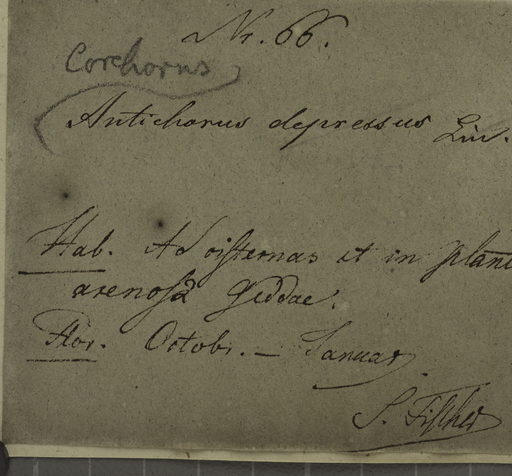 Nr. 66.
Corchorus
Antichorus depressus Lin.
Hab. Ad cisternas et in plani
arenosa Geddae.
Flor. Octobr. – Januar.
S. Fischer